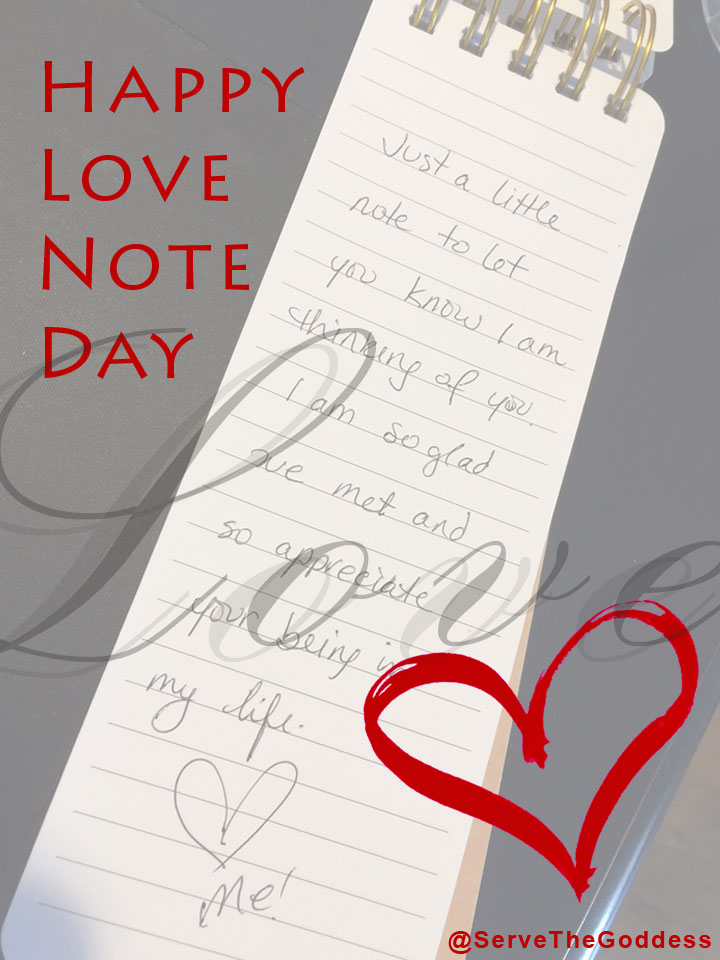 Happy
Love
Note
Day
Just a little
note to let
you know I am
thinking of you.
I am so glad
we met and
so appreciate
your being in
my life.
Me!
Love
@ServeTheGoddess